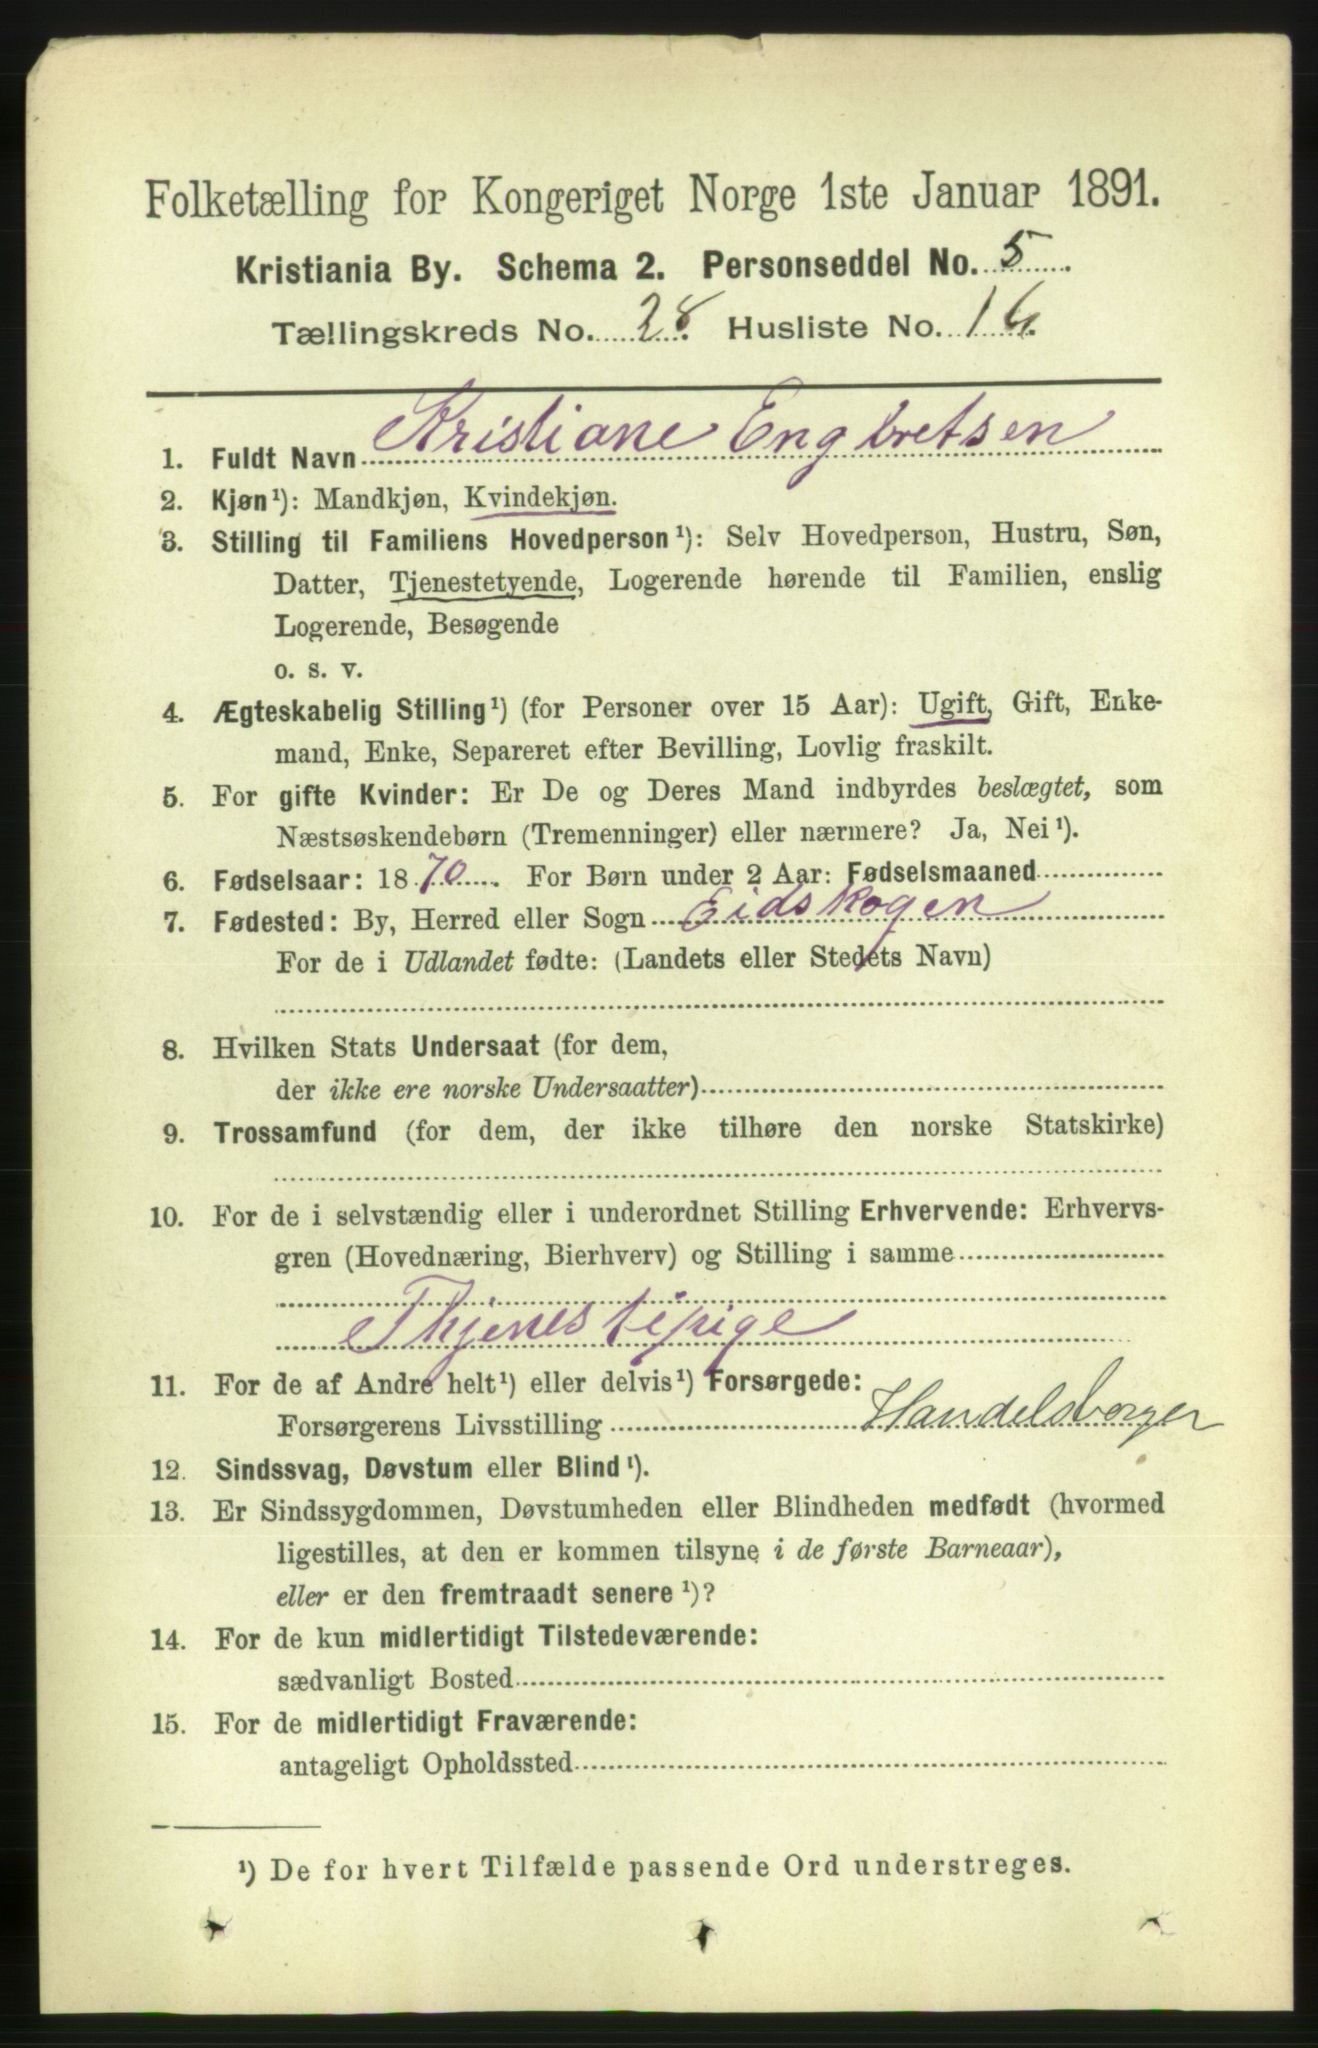 Folketælling for Kongeriget Norge 1ste Januar 1891.
Kristiania By. Schema 2. Personseddel No. 5
Tællingskreds No. 28. Husliste No. 16.
1. Fuldt Navn Kristiane Engbretsen
2. Kjøn¹): Mandkjøn, Kvindekjøn.
3. Stilling til Familiens Hovedperson¹): Selv Hovedperson, Hustru, Søn,
Datter, Tjenestetyende, Logerende hørende til Familien, enslig
Logerende, Besøgende
o. s. v.
4. Ægteskabelig Stilling¹) (for Personer over 15 Aar): Ugift, Gift, Enke-
mand, Enke, Separeret efter Bevilling, Lovlig fraskilt.
5. For gifte Kvinder: Er De og Deres Mand indbyrdes beslægtet, som
Næstsøskendebørn (Tremenninger) eller nærmere? Ja, Nei¹).
6. Fødselsaar: 1870. For Børn under 2 Aar: Fødselsmaaned
7. Fødested: By, Herred eller Sogn Eidskogen
For de i Udlandet fødte: (Landets eller Stedets Navn)
8. Hvilken Stats Undersaat (for dem,
der ikke ere norske Undersaatter)
9. Trossamfund (for dem, der ikke tilhøre den norske Statskirke)
10. For de i selvstændig eller i underordnet Stilling Erhvervende: Erhvervs-
gren (Hovednæring, Bierhverv) og Stilling i samme
Thjenestepige
11. For de af Andre helt¹) eller delvis¹) Forsørgede:
Forsørgerens Livsstilling Handelsborger
12. Sindssvag, Døvstum eller Blind¹).
13. Er Sindssygdommen, Døvstumheden eller Blindheden medfødt (hvormed
ligestilles, at den er kommen tilsyne i de første Barneaar),
eller er den fremtraadt senere¹)?
14. For de kun midlertidigt Tilstedeværende:
sædvanligt Bosted
15. For de midlertidigt Fraværende:
antageligt Opholdssted
¹) De for hvert Tilfælde passende Ord understreges.